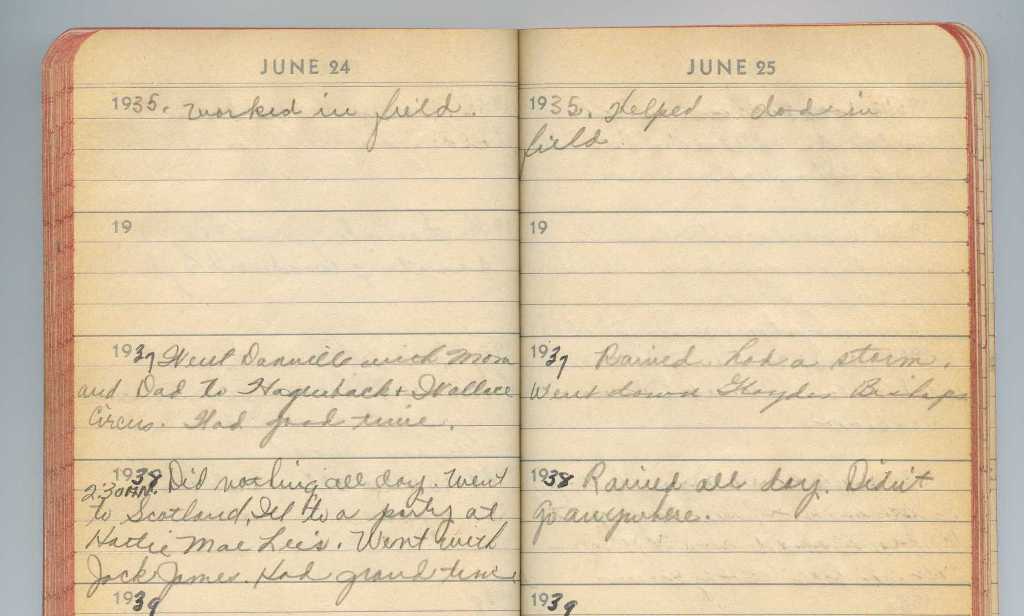 JUNE 24
1935. Worked in field.
19
1937 Went Danville with Mom
and Dad to Hagenback & Wallace
Circus. Had good time.
1938 Did nothing all day. Went
2:30 A.M.
to Scotland, Ill to a party at
Hattie Mae Lee's. Went with
Jack James. Had grand time
1939
JUNE 25
1935. Helped dad in
field
19
1937 Rained had a storm.
Went down Bishops
1938 Rained all day. Didn't
go anywhere.
1939